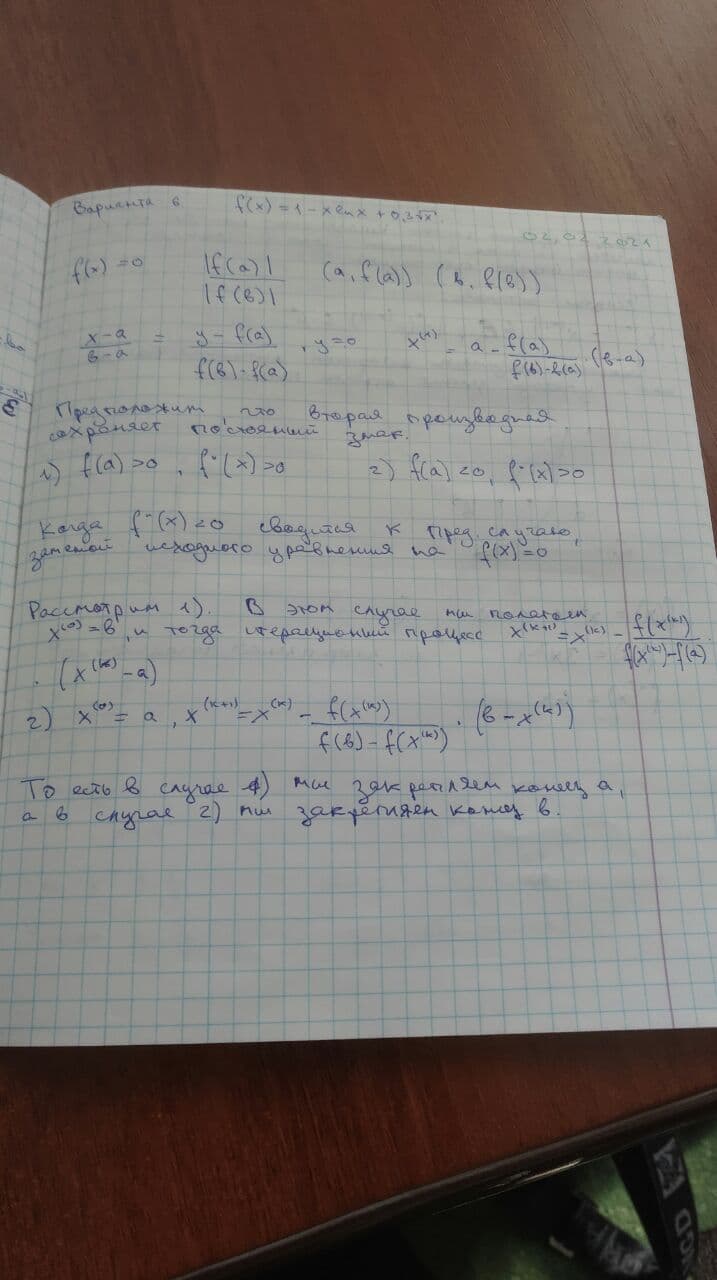 Варианта 6 f(x) = 1 - x ln x + 0,3√x
02.02.2021
f(x) = 0 |f(a)| / |f(b)| (a, f(a)) (b, f(b))
(x-a)/(b-a) = (y-f(a))/(f(b)-f(a)), y=0 x^(1) = a - f(a)/(f(b)-f(a)) · (b-a)
Предположим, что вторая производная
сохраняет постояный знак.
1) f(a) >0, f''(x) >0 2) f(a) <0, f''(x) >0
Когда f''(x) <0 сводится к пред. случаю,
заменой исходного уравнения на f(x) = 0
Рассмотрим 1). В этом случае мы полагаем
x^(0) = b, и тогда итерационный процесс x^(k+1) = x^(k) - f(x^(k))/(f(x^(k))-f(a))
· (x^(k) - a)
2) x^(0) = a, x^(k+1) = x^(k) - f(x^(k))/(f(b)-f(x^(k))) · (b - x^(k))
То есть в случае 1) мы закрепляем конец a,
а в случае 2) мы закрепляем конец b.